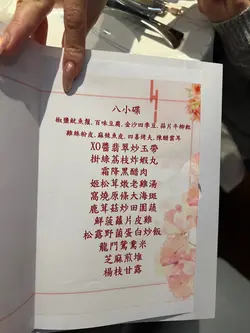 八小碟
椒鹽魷魚鬚, 百味豆腐, 金沙四季豆, 蒜片牛柳粒
雞絲粉皮, 麻辣魚皮, 四喜烤夫, 陳醋雲耳
XO醬翡翠炒玉帶
掛綠荔枝炸蝦丸
霜降黑醋肉
姬松茸燉老雞湯
窩燒原條大海斑
鹿茸菇炒田園蔬
鮮菠蘿片皮雞
松露野菌蛋白炒飯
龍門鴛鴦米
芝麻煎堆
楊枝甘露